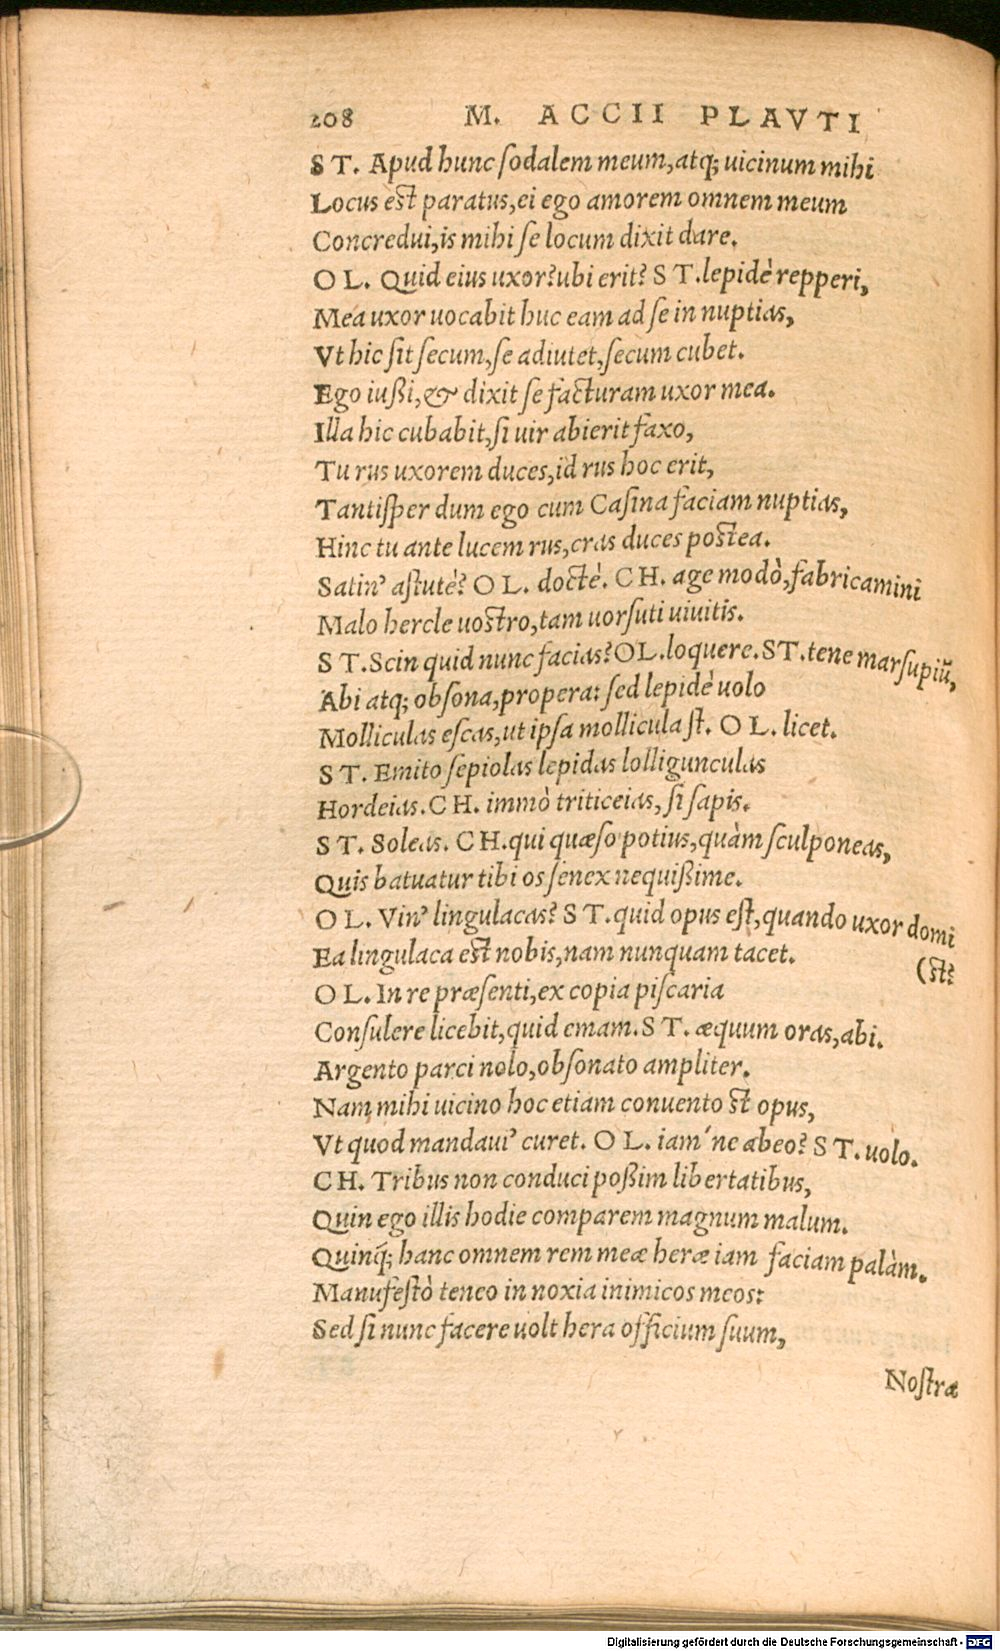 208 M. ACCII PLAVTI
ST. Apud hunc sodalem meum, atq; uicinum mihi
Locus est paratus, ei ego amorem omnem meum
Concredui, is mihi se locum dixit dare.
OL. Quid eius uxor? ubi erit? ST. lepidè repperi,
Mea uxor uocabit huc eam ad se in nuptias,
Vt hic sit secum, se adiutet, secum cubet.
Ego iußi, & dixit se facturam uxor mea.
Illa hic cubabit, si uir abierit faxo,
Tu rus uxorem duces, id rus hoc erit,
Tantisper dum ego cum Casina faciam nuptias,
Hinc tu ante lucem rus, cras duces postea.
Satin' astutè? OL. doctè. CH. age modò, fabricamini
Malo hercle uostro, tam uorsuti uiuitis.
ST. Scin quid nunc facias? OL. loquere. ST. tene marsupiũ,
Abi atq; obsona, propera: sed lepidè uolo
Molliculas escas, ut ipsa mollicula st. OL. licet.
ST. Emito sepiolas lepidas lolligunculas
Hordeias. CH. immò triticeias, si sapis.
ST. Soleas. CH. qui quæso potius, quàm sculponeas,
Quis batuatur tibi os senex nequißime.
OL. Vin' lingulacas? ST. quid opus est, quando uxor domi
Ea lingulaca est nobis, nam nunquam tacet. (st?
OL. In re præsenti, ex copia piscaria
Consulere licebit, quid emam. ST. æquum oras, abi.
Argento parci nolo, obsonato ampliter.
Nam mihi uicino hoc etiam conuento st opus,
Vt quod mandaui' curet. OL. iam'ne abeo? ST. uolo.
CH. Tribus non conduci poßim libertatibus,
Quin ego illis hodie comparem magnum malum.
Quinq́; hanc omnem rem meæ heræ iam faciam palàm.
Manufestò teneo in noxia inimicos meos:
Sed si nunc facere uolt hera officium suum,
Nostra
Digitalisierung gefördert durch die Deutsche Forschungsgemeinschaft - DFG